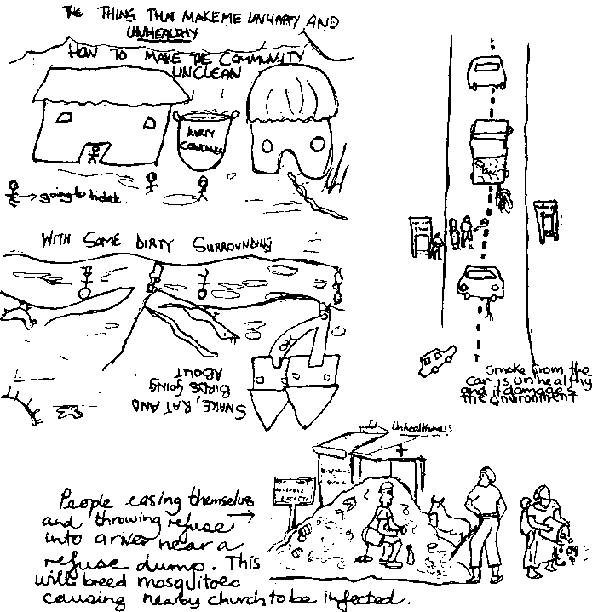 THE THING THAT MAKE ME UNHAPPY AND
UNHEALTHY
HOW TO MAKE THE COMMUNITY
UNCLEAN
DIRTY
going to toilet
WITH SOME DIRTY SURROUNDING
SNAKE, RAT AND
BIRDS GOING
ABOUT
Smoke from the
car is unhealthy
and it damages
the environment
People easing themselves
and throwing refuse
into a river near a
refuse dump. This
will breed mosquitoes
causing nearby church to be infected.